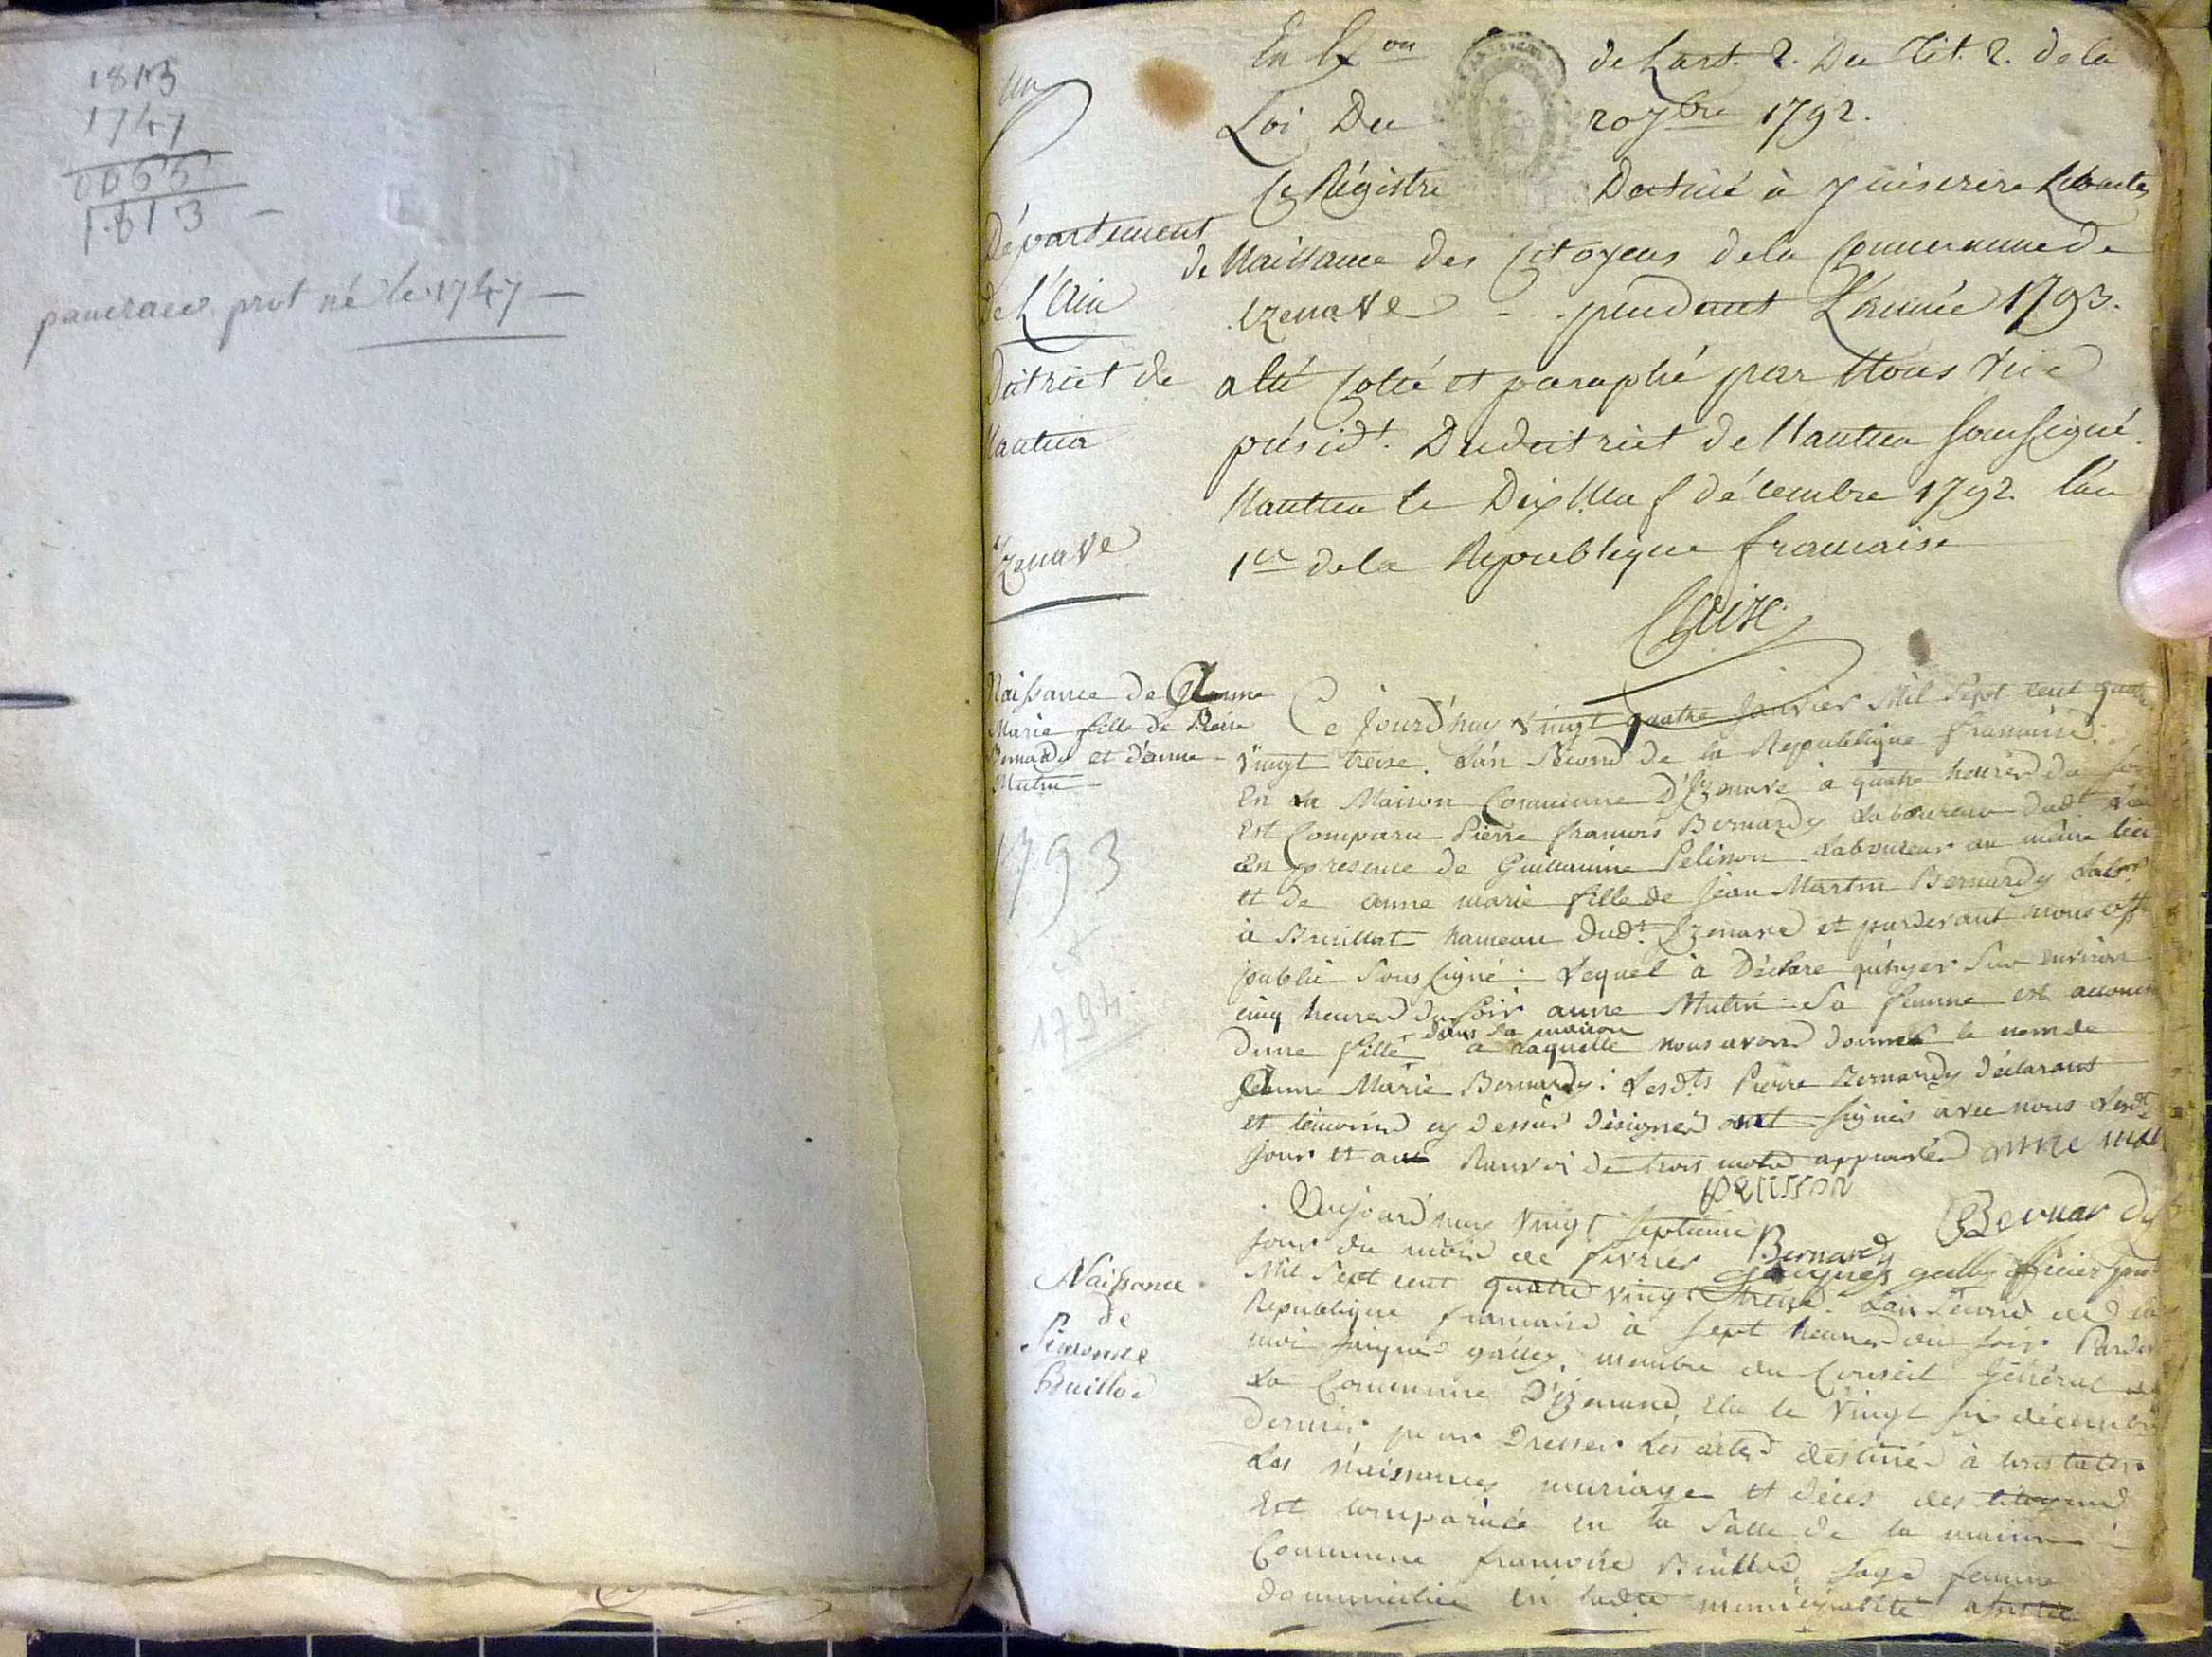 1813
1747
0066
1813
pancrace prot né le 1747
un
Département
de L'Ain
District de
Nantua
Izenave
En Exon de Lart. 2. Du Tit. 2. de la
Loi Du 20 7bre 1792.
Ce Régistre Destiné à y inscrire Les actes
de Naissance des Citoyens de la Commune de
Izenave - - pendant L'année 1793.
a été Cotté et paraphé par Nous Vice
présidt. Du district de Nantua Soussigné.
Nantua le Dix Neuf décembre 1792 l'an
1er de la Republique francaise
Naissance de Jeanne
Marie fille de Pierre
Bernardy et d'anne
Mutin
1793
et
1794.
Ce Jourd'huy vingt quatre Janvier Mil Sept cent quatre
Vingt treise. L'an Second de la Republique francaise.
En la Maison Commune D'Izenave à quatre heures du soir
Est Comparu Pierre francois Bernardy Laboureur dudt lieu
En presence de Guillaume Pelisson Laboureur au même lieu
et de anne marie fille de Jean Martin Bernardy Labr
à Breillat hameau dudt. Izenave et pardevant nous offr
public Soussigné : Lequel à Déclare qu'hyer Sur environ
cinq heures du soir anne Mutin Sa femme est accouchée
dune fille dans sa maison à laquelle nous avons donné le nom de
Jeanne Marie Bernardy : Lesdts Pierre Bernardy déclarant
et témoins cy dessus désignés ont signés avec nous Lesdt
Jour et an Renvoi de trois mots approuvés anne mari
pelisson
Bernardy
Bernardy
Jaques galley officier pub
Naissance
de
Simonne
Buillod
Aujourd'huy vingt septieme
jour du mois de fevrier
Mil Sept cent quatre vingt treise. L'an Second de la
Republique francaise à sept heures du soir Pardevt
moi Jaques galley, membre du Conseil Général de
La Commune D'Izenave, Elu le Vingt six décembre
dernier pour Dresser Les actes destinés à constater
Les naissances mariages et décès des citoyens
Est comparuée en la Salle de la maison
Commune francoise Buillod sage femme
domiciliée en ladte municipalité assistée